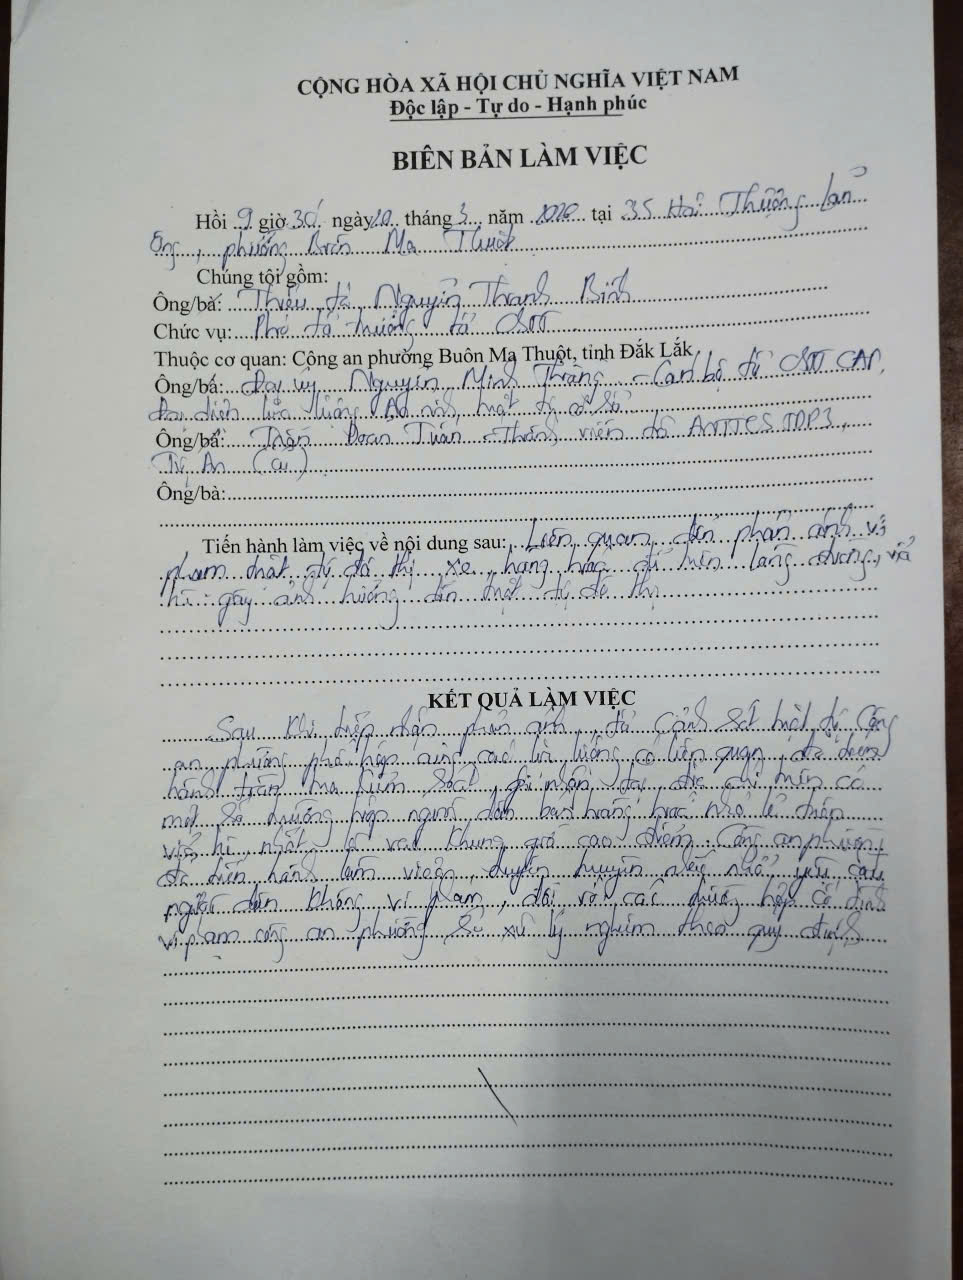 CỘNG HÒA XÃ HỘI CHỦ NGHĨA VIỆT NAM
Độc lập - Tự do - Hạnh phúc
BIÊN BẢN LÀM VIỆC
Hồi 9 giờ 30 ngày tháng 3 năm tại 35 Hải Thượng Lãn
Ông, phường Buôn Ma Thuột
Chúng tôi gồm:
Ông/bà: Thiếu tá Nguyễn Thanh Bình
Chức vụ: Phó tổ trưởng tổ CSTT
Thuộc cơ quan: Công an phường Buôn Ma Thuột, tỉnh Đắk Lắk
Ông/bà: Đại úy Nguyễn Minh - Cán bộ tổ CSTT CAP,
Đại diện lực lượng An ninh trật tự cơ sở
Ông/bà: Trần Đoàn Tuấn - Thành viên tổ ANTTCS TDP3,
Tự An
Ông/bà:
Tiến hành làm việc về nội dung sau: Liên quan đến phản ánh vi
phạm trật tự đô thị xe, hàng hóa để trên lòng đường, vỉa
hè gây ảnh hưởng đến trật tự đô thị
KẾT QUẢ LÀM VIỆC
Sau khi tiếp nhận phản ánh, tổ Cảnh sát trật tự Công
an phường phối hợp cùng các lực lượng có liên quan, đã tiến
hành tuần tra kiểm soát, ghi nhận tại địa chỉ trên có
một số trường hợp người dân bán hàng nhỏ lẻ
vỉa hè, nhất là vào khung giờ cao điểm. Công an phường
đã tiến hành làm việc, tuyên truyền nhắc nhở, yêu cầu
người dân không vi phạm, đối với các trường hợp cố tình
vi phạm công an phường sẽ xử lý nghiêm theo quy định